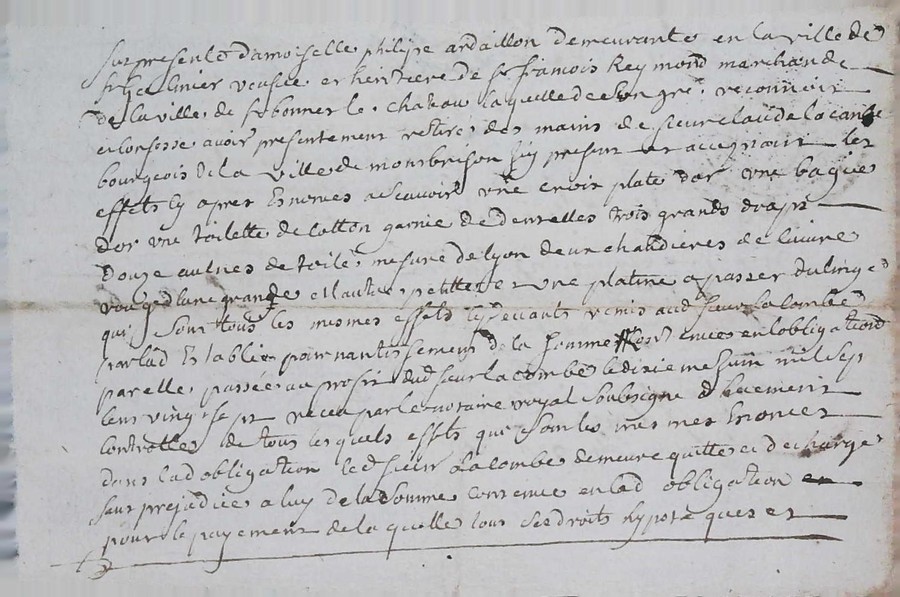 fut presente damoiselle philipe ardaillon demeurante en la ville de
st galmier veufve et heritiere de sr francois Reymond marchand
de la ville de st bonnet le chateau laquelle de son gré reconnoit
et confesse avoir presentement retiré des mains de sieur claude lacombe
bourgeois de la ville de montbrison icy present et acceptant les
effets cy apres Enoncés a scavoir une croix plate d'or une bague
d'or une toilette de cotton garnie de dentelles trois grands draps
douze aulnes de toile mesure de lyon deux chaudieres de cuivre
rouge d'une grande et l'autre petitte et une platine a passer du linge
qui sont tous les mesmes effets cy devants remis aud sieur lacombe
par lad Establie pour nantissement de la somme contenue en l'obligation
par elle passée au profit dud sieur lacombe le dixieme juin mil sept
cent vingt sept receu par le notaire royal soubsigné deuement
controllée de tous lesquels effets qui sont les mesmes Enoncés
dans lad obligation led sieur Lacombe demeure quitte et decharge
sans prejudice a luy de la somme contenue en lad obligation et
pour le payement de laquelle tous ses droits hypoteques et